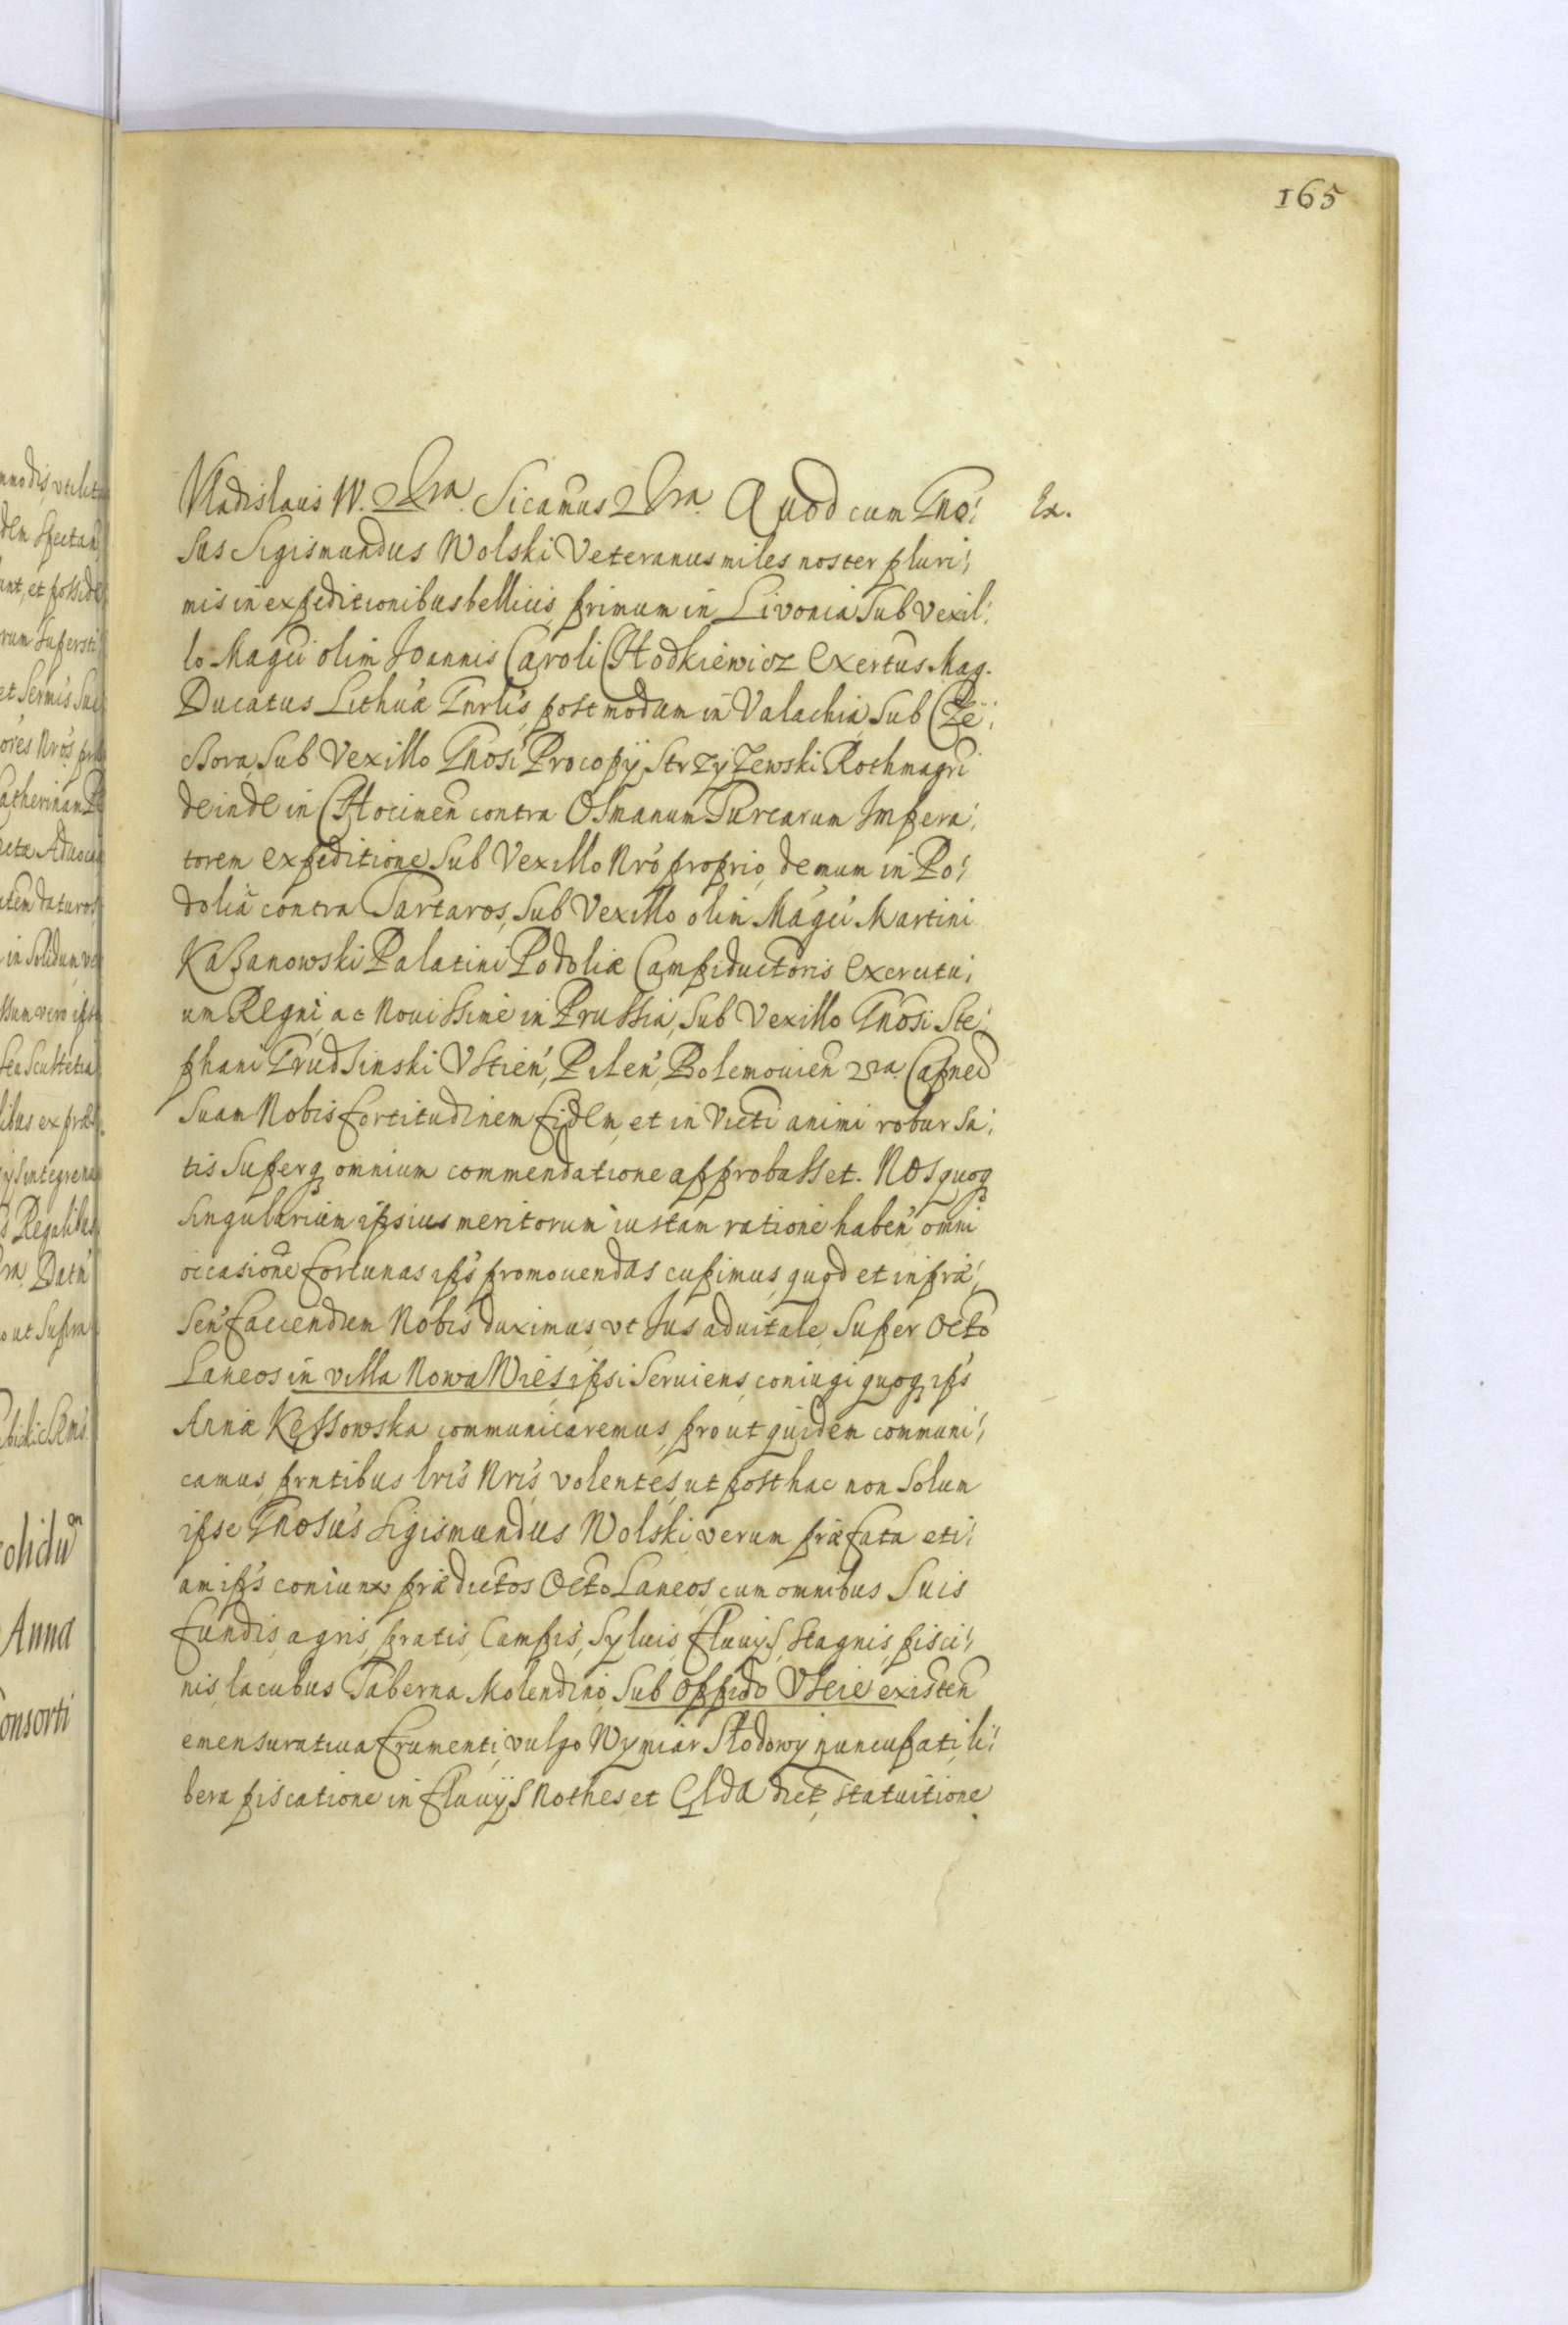 165
Vladislaus IV. &ra. Sicamus &ra. Quod cum Gno:
sus Sigismundus Wolski Veteranus miles noster pluri:
mis in expeditionibus bellicis, primum in Livonia Sub Vexil:
lo Magci olim Joannis Caroli CHodkiewicz Exertus Mag.
Ducatus Lithuae Gnrlis, post modum in Valachia, Sub CZe:
cBora, Sub Vexillo Gnosi Procopij StrzyZewski Rothmagri
deinde in CHocimen contra Osmanum Turcarum Impera:
torem expeditione Sub Vexillo Nro proprio, demum in Po:
dolia contra Tartaros, Sub Vexillo olim Magci Martini
KaBanowski Palatini Podoliae Campiductoris Exercitu:
um Regni, ac Nouissime in Prussia, Sub Vexillo Gnosi Ste:
phani GrudSinski VStien, Pilen, Bolemouien &ra. Capnei
Suam Nobis fortitudinem fidem, et in victi animi robur Sa:
tis Superq omnium commendatione approbasset. Nos quoq
Singularium ipsius meritorum iustam ratione haben omni
occasione fortunas ips promouendas cupimus, quod et in prae:
sen faciendum Nobis duximus, vt Jus aduitale Super Octo
Laneos in villa Nowa Wies ipsi Seruiens, coniugi quoq ips
Annae Kessowska communicaremus, prout quidem communi:
camus prntibus lris Nris, volentes, ut post hac non Solum
ipse Gnosus Sigismundus Wolski verum praefata eti:
am ips coniunx praedictos Octo Laneos, cum omnibus Suis
fundis, agris, pratis, Campis, Syluis, fluuijs, Stagnis, pisci:
nis, lacubus Taberna Molendino Sub Oppido VScie existen
emensuratiua frumenti, vulgo Wymiar Słodowy nuncupati, li:
bera piscatione in fluuijs Nothes et Glda dict, statuitione
Ex.